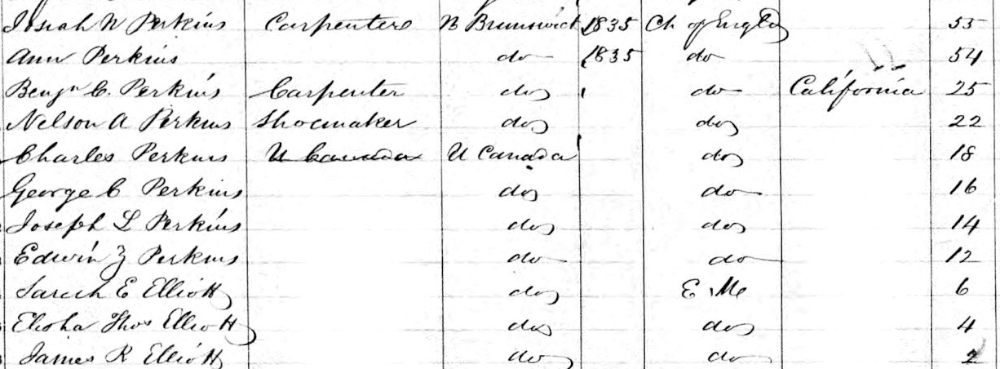 Josiah W Perkins Carpenter N Brunswick 1835 Ch of England 55
Ann Perkins do 1835 do 54
Benjn C. Perkins Carpenter do do California 25
Nelson A Perkins Shoemaker do do 22
Charles Perkins U Canada U Canada do 18
George C Perkins do do 16
Joseph L Perkins do do 14
Edwin Z Perkins do do 12
Sarah E Elliott do E Me 6
Elisha Thos Elliott do do 4
James R Elliott do do 2